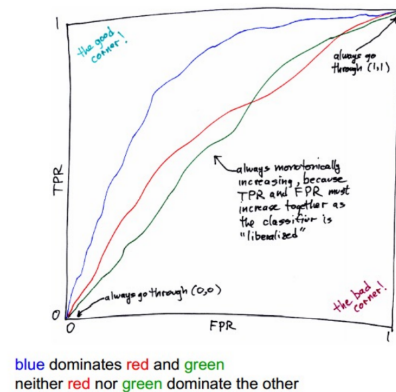 1
the good
corner!
always go
through (1,1)
TPR
always monotonically
increasing, because
TPR and FPR must
increase together as
the classifier is
"liberalized"
always go through (0,0)
the bad
corner!
0
0
FPR
1
blue dominates red and green
neither red nor green dominate the other